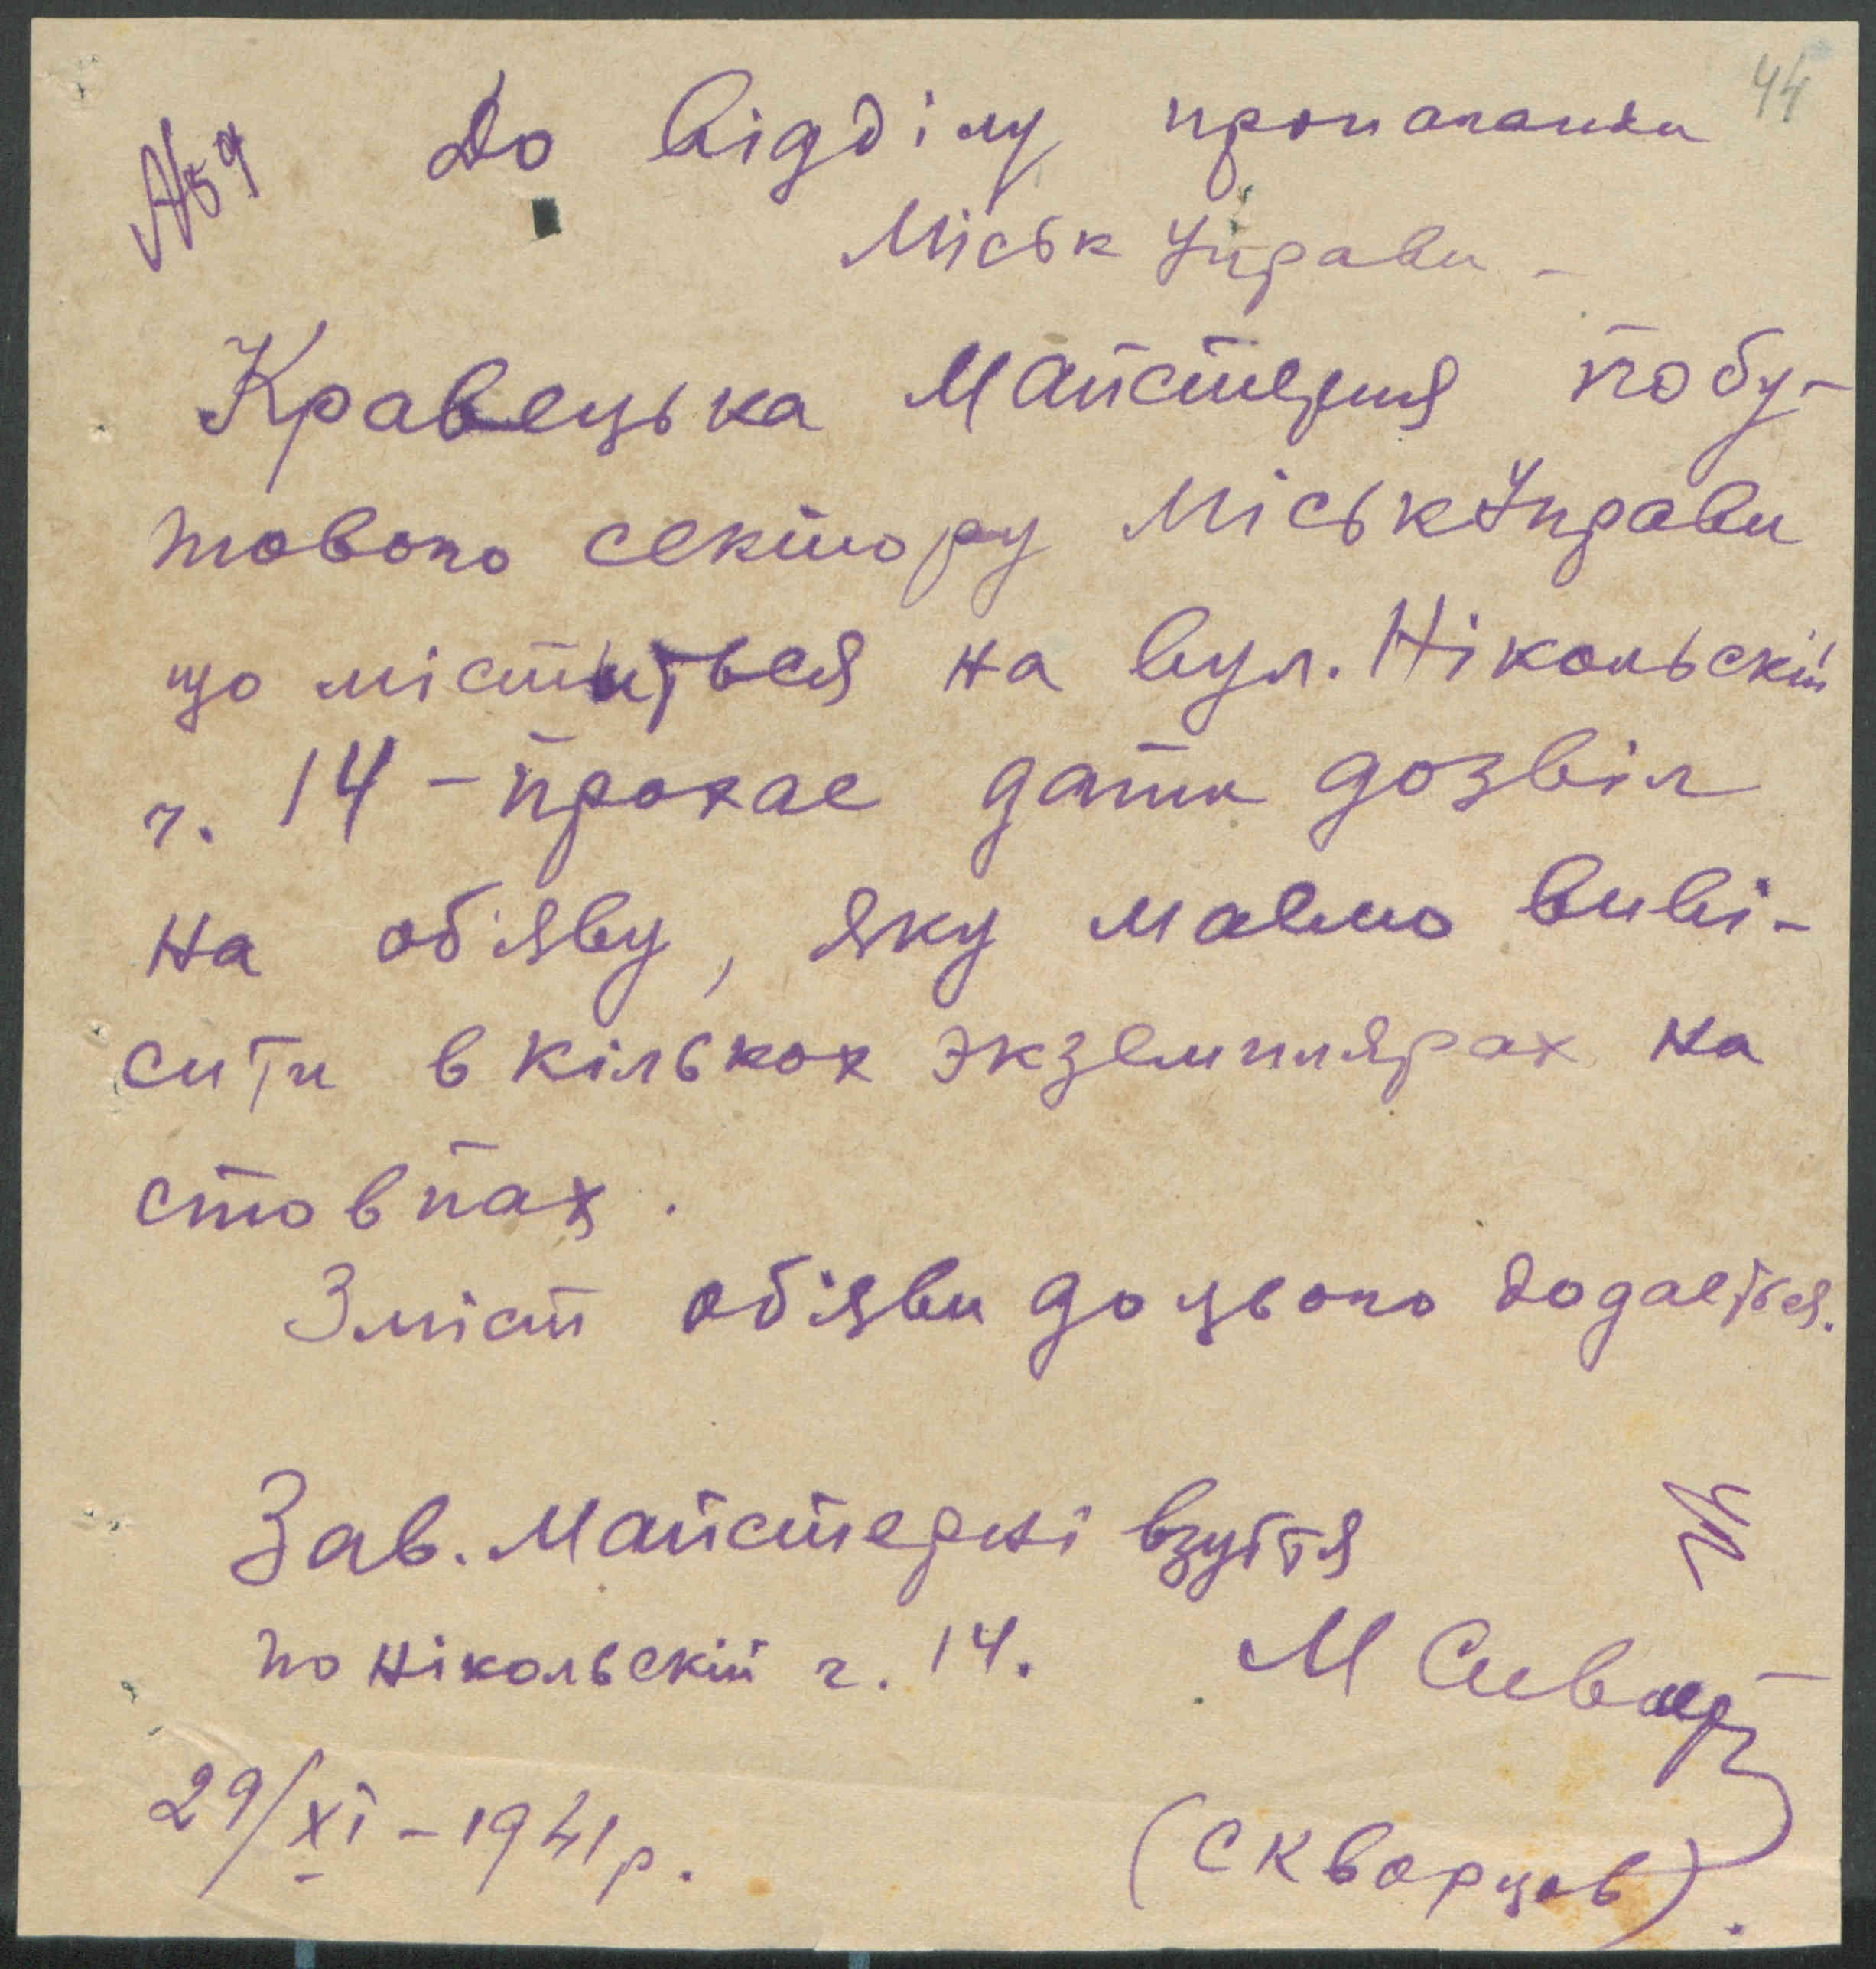 44
№ 59 До відділу пропаганди
Міськ Управи –
Кравецька майстерня побу-
тового сектору МіськУправи
що міститься на вул. Нікольскій
ч. 14 – прохае дати дозвіл
на об'яву, яку маемо виві-
сити в кількох экземплярах на
стовпах.
Зміст об'яви до цього додаеться.
Зав. Майстерні взуття
по Нікольскій ч. 14. М
29/XI – 1941 р.
(Скворцов).